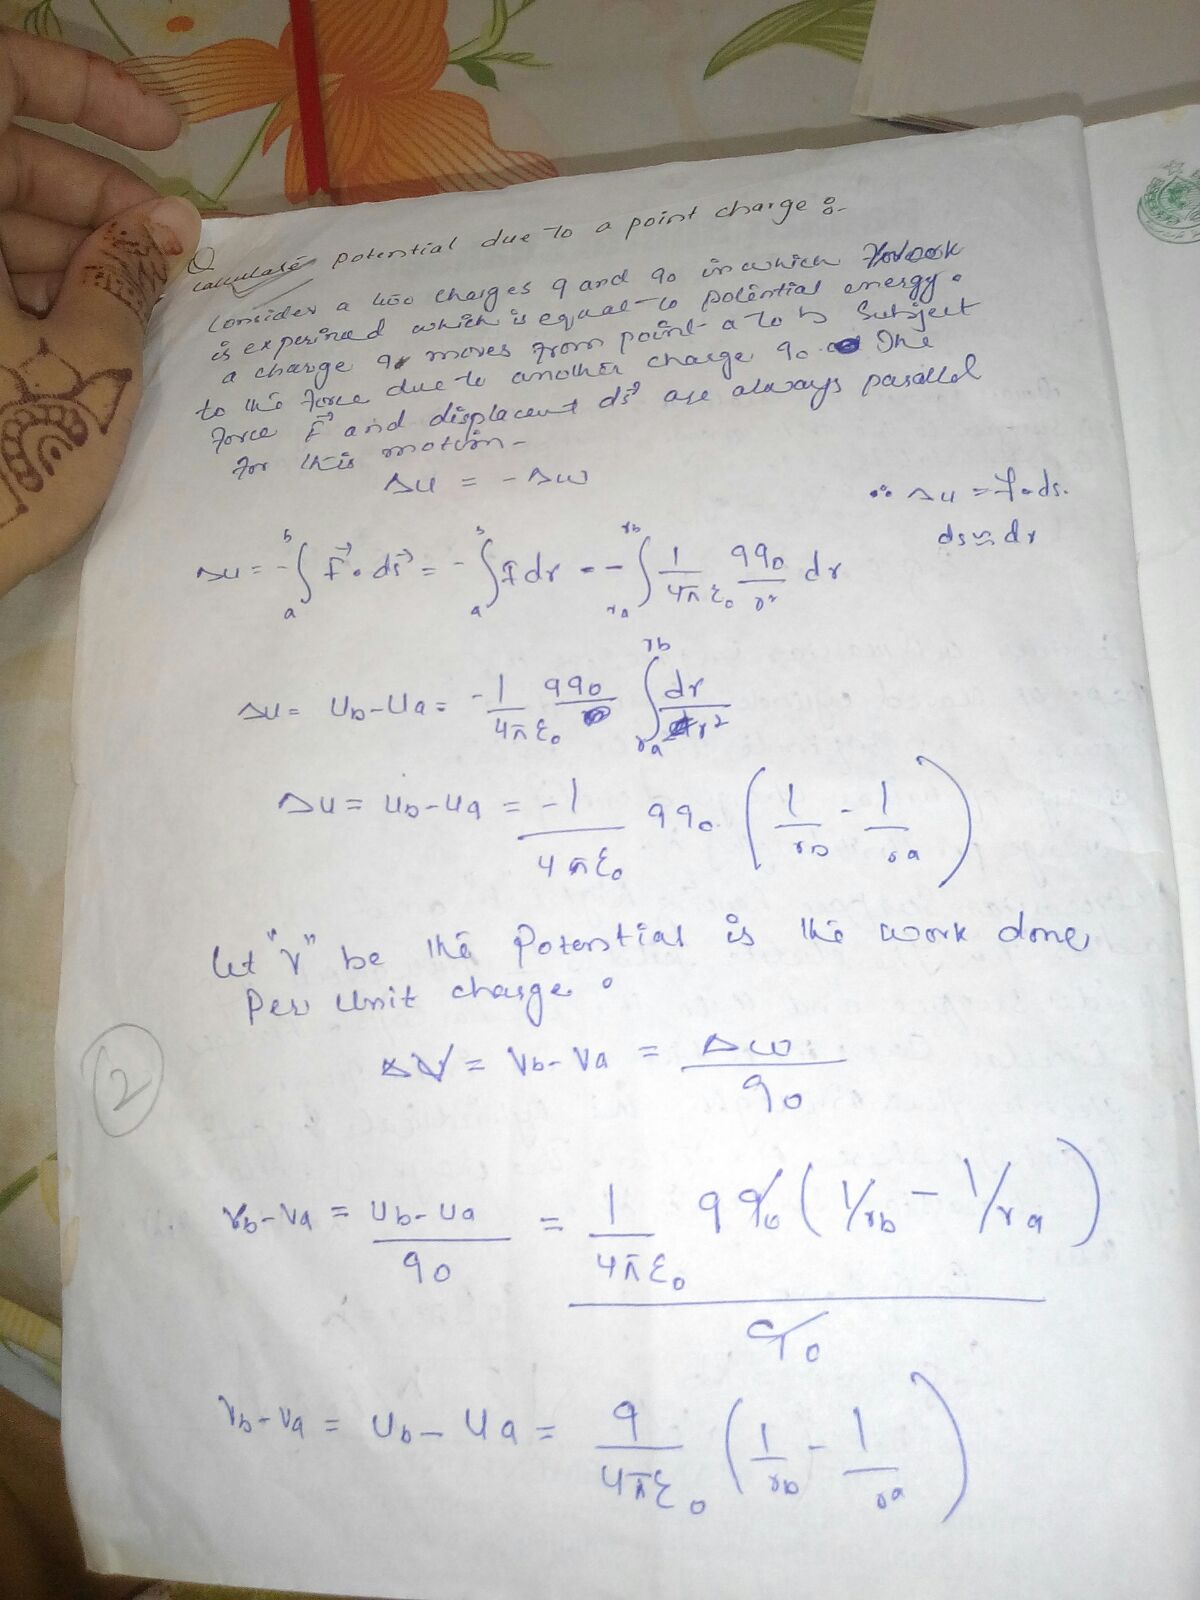 Q
Calculate potential due to a point charge :-
Consider a two charges q and q0 in which
is experined which is equal to potential energy.
a charge q moves from point a to b Subject
to the force due to another charge q0. The
force F⃗ and displacent ds⃗ are always parallel
for this motion -
Δu = - Δw
∴ Δu = f.ds.
ds ≈ dr
Δu = -∫ₐᵇ F⃗ . ds⃗ = -∫ₐᵇ F dr = -∫_ra^rb 1/4πε0 qq0/r² dr
Δu = Ub - Ua = -1/4πε0 qq0 ∫_ra^rb dr/r²
Δu = Ub - Ua = -1/4πε0 qq0 (1/rb - 1/ra)
let "V" be the potential is the work done
per unit charge.
ΔV = Vb - Va = Δw/q0
2
Vb - Va = Ub - Ua/q0 = 1/4πε0 qq0 (1/rb - 1/ra)/q0
Vb - Va = Ub - Ua = q/4πε0 (1/rb - 1/ra)